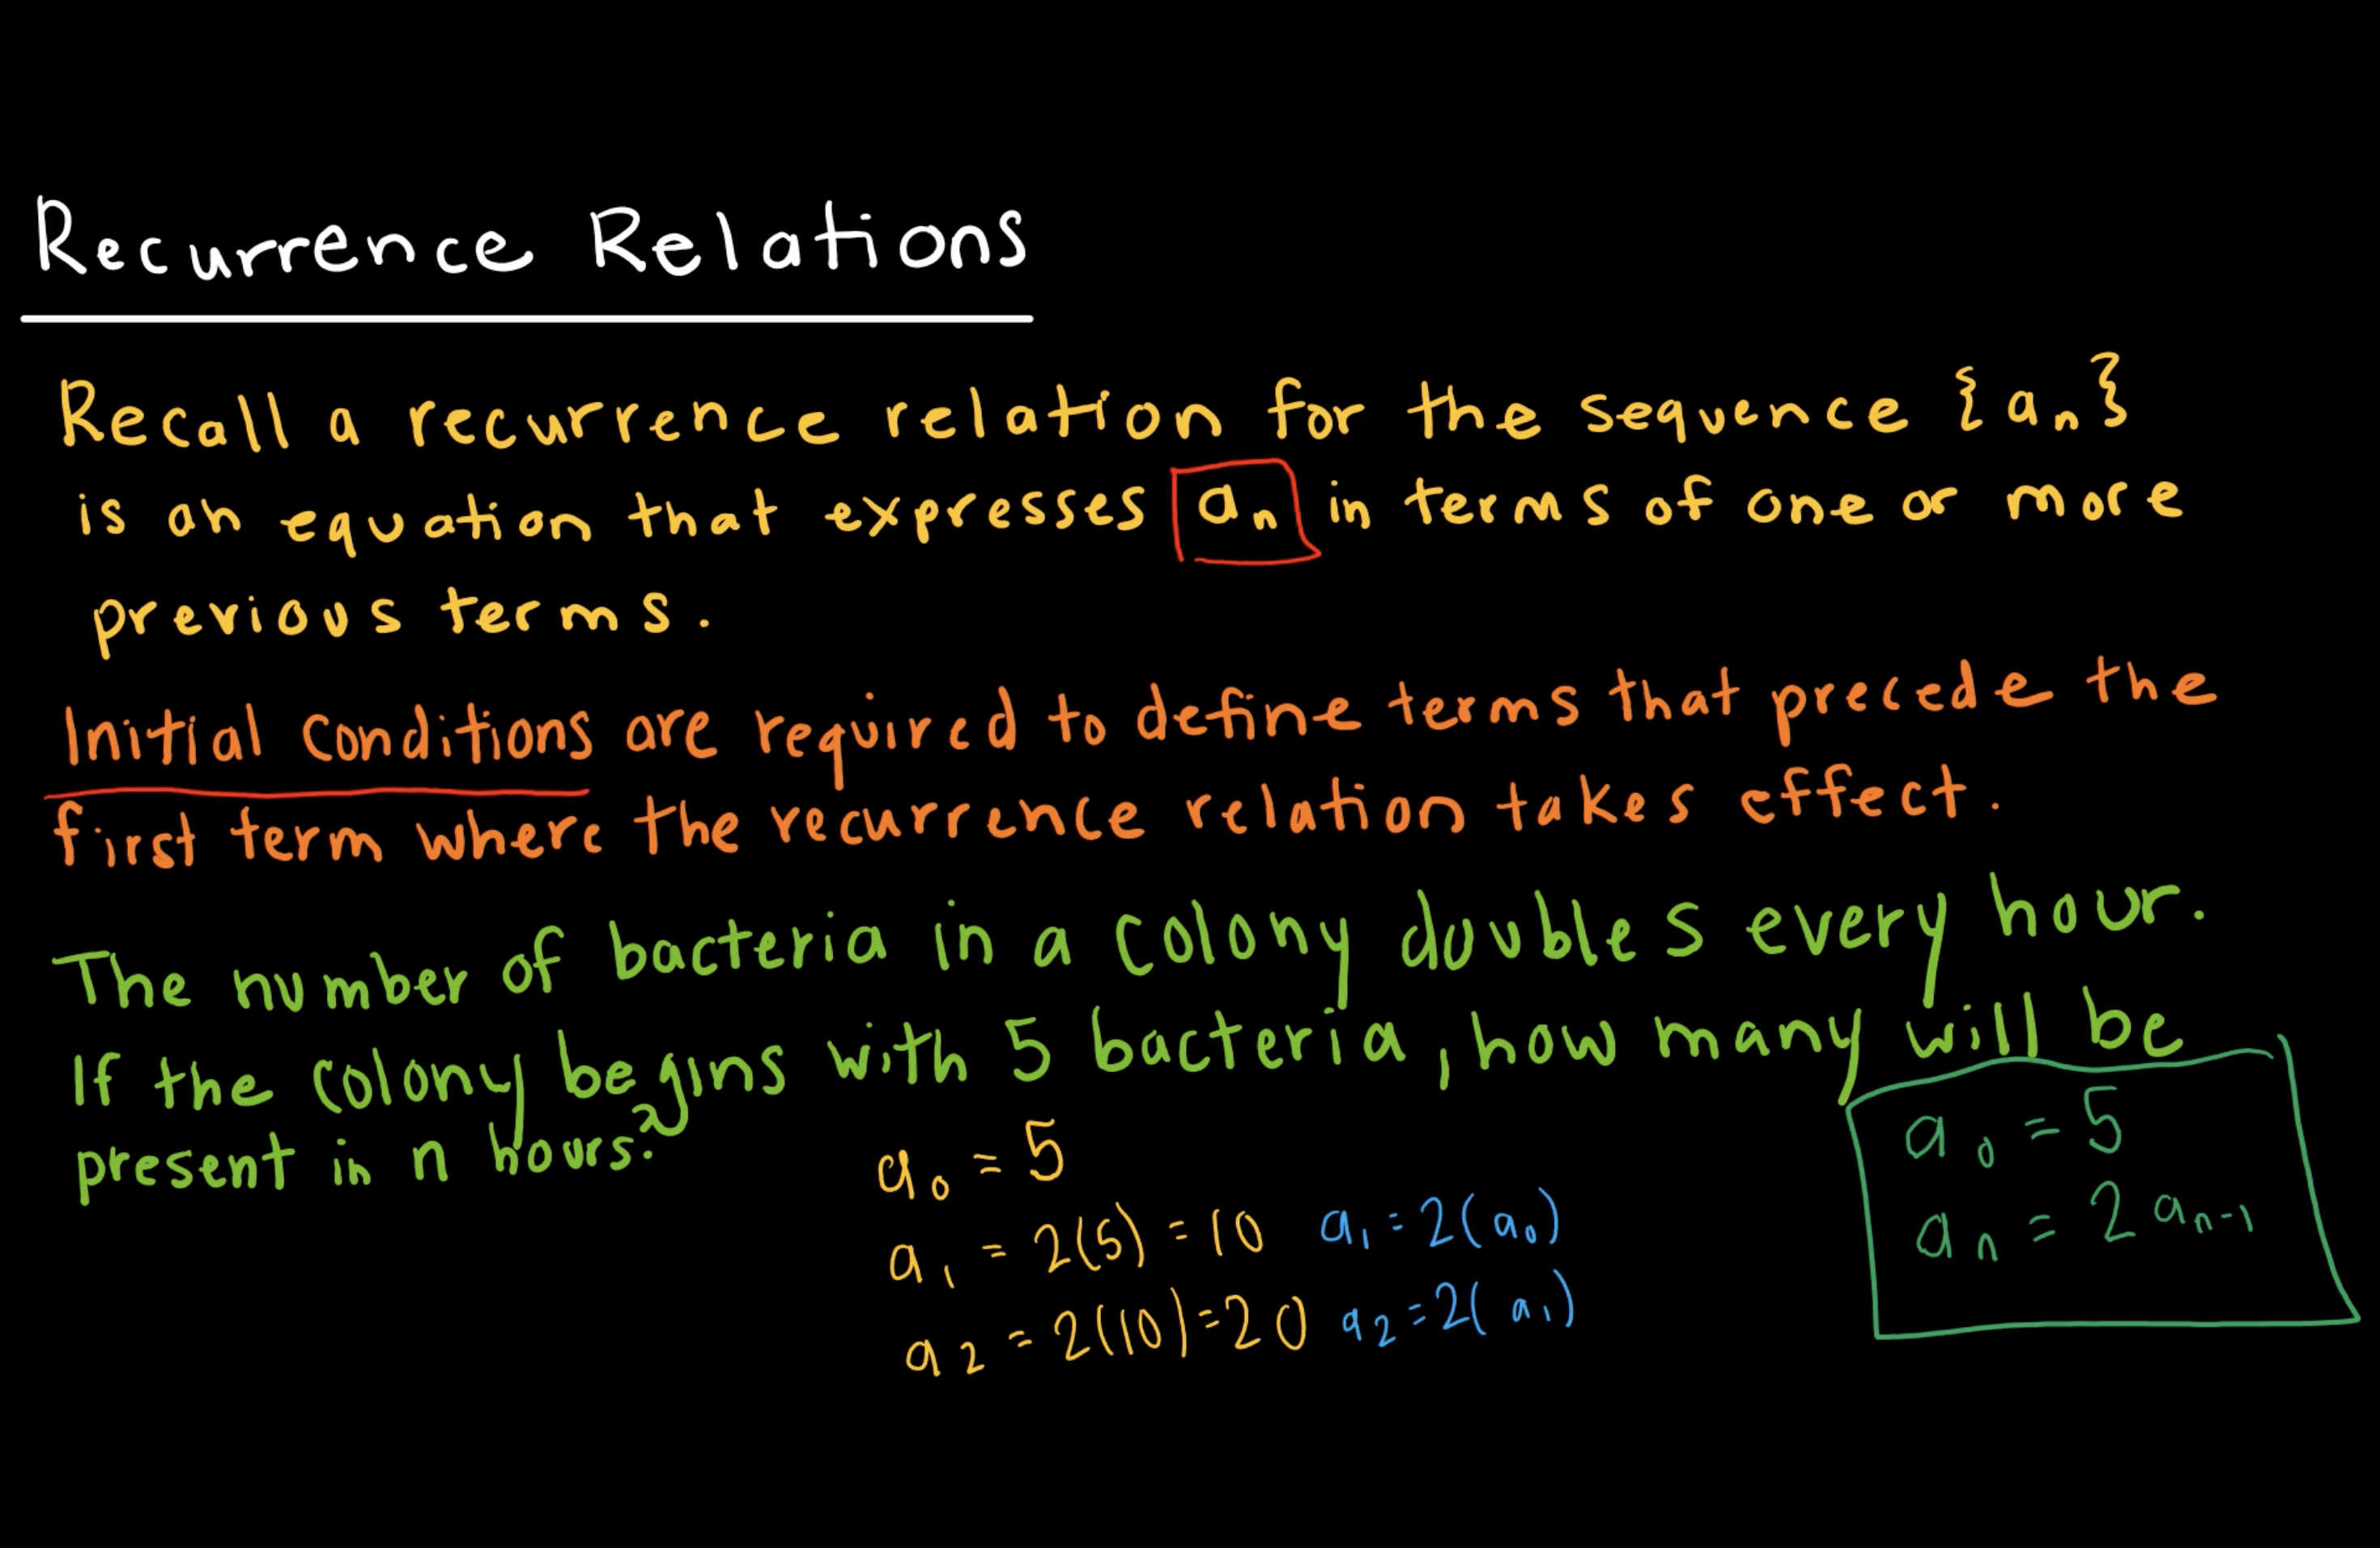 Recurrence Relations
Recall a recurrence relation for the sequence {aₙ}
is an equation that expresses aₙ in terms of one or more
previous terms.
Initial conditions are required to define terms that precede the
first term where the recurrence relation takes effect.
The number of bacteria in a colony doubles every hour.
If the colony begins with 5 bacteria, how many will be
present in n hours?
a₀ = 5
a₁ = 2(5) = 10 a₁ = 2(a₀)
a₂ = 2(10) = 20 a₂ = 2(a₁)
a₀ = 5
aₙ = 2aₙ₋₁